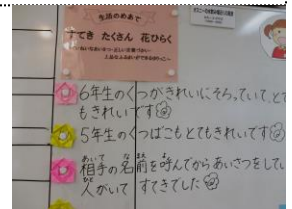 生活のめあて
すてき たくさん 花ひらく
6年生のくつがきれいにそろっていて、とて
もきれいです
5年生のくつばこもとてもきれいです
相手の名前を呼んでからあいさつをしてい
人がいて すてきでした